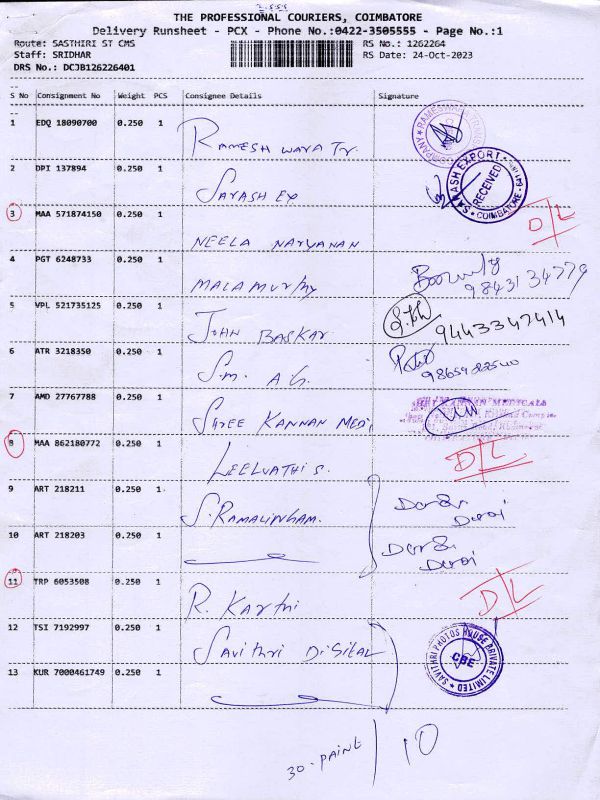 THE PROFESSIONAL COURIERS, COIMBATORE
Delivery Runsheet - PCX - Phone No.:0422-3505555 - Page No.:1
Route: SASTHIRI ST CMS RS No.: 1262264
Staff: SRIDHAR RS Date: 24-Oct-2023
DRS No.: DCJB126226401
S No Consignment No Weight PCS Consignee Details Signature
1 EDQ 18090700 0.250 1
RAMESH WARA Tr.
2 DPI 137894 0.250 1
SAYASH EX
RECEIVED
COIMBATORE
3 MAA 571874150 0.250 1 D/L
NEELA NARYANAN
4 PGT 6248733 0.250 1
MALAMURTHY
98431 34779
5 VPL 521735125 0.250 1
JOHN BASKAR
9444334 7414
6 ATR 3218350 0.250 1
S.M. A G.
7 AMD 27767788 0.250 1
SHREE KANNAN MEDI
8 MAA 862180772 0.250 1 D/L
LEELVATHI S.
9 ART 218211 0.250 1
S. RAMALINGHAM.
10 ART 218203 0.250 1
11 TRP 6053508 0.250 1 D/L
R. Karthi
12 TSI 7192997 0.250 1
SAVITHRI DIGITAL
SAVITHRI PHOTOS HOUSE PRIVATE LIMITED
CBE
13 KUR 7000461749 0.250 1
30-PAINT / 10